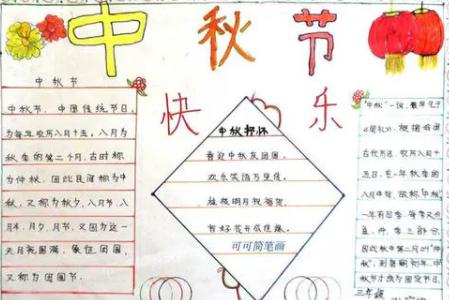 中秋节
快乐
中秋节
中秋节,中国传统节日,
为每年农历八月十五,八月为
秋季的第二个月,古时称
为仲秋,因此民间称为中
秋,又称为秋夕,八月节,八
月半,月夕,月节,又因为这一
天月亮圆满,象征团圆,
又称为团圆节.
中秋抒怀
喜迎中秋庆团圆,
欢乐笑语万里传,
明月祝福
有好花开成佳缘.
可可简笔画
"中秋"一词,最早见于
《周礼》,根据我国
古代历法,农历八月
十五日,在一年秋季的
八月中旬,故称"中秋".
一年有四季,每季又分
孟,仲,季三部分,
因此秋中第二月叫"仲
秋",到唐朝初年,中
秋节才成为固定节日
三年级